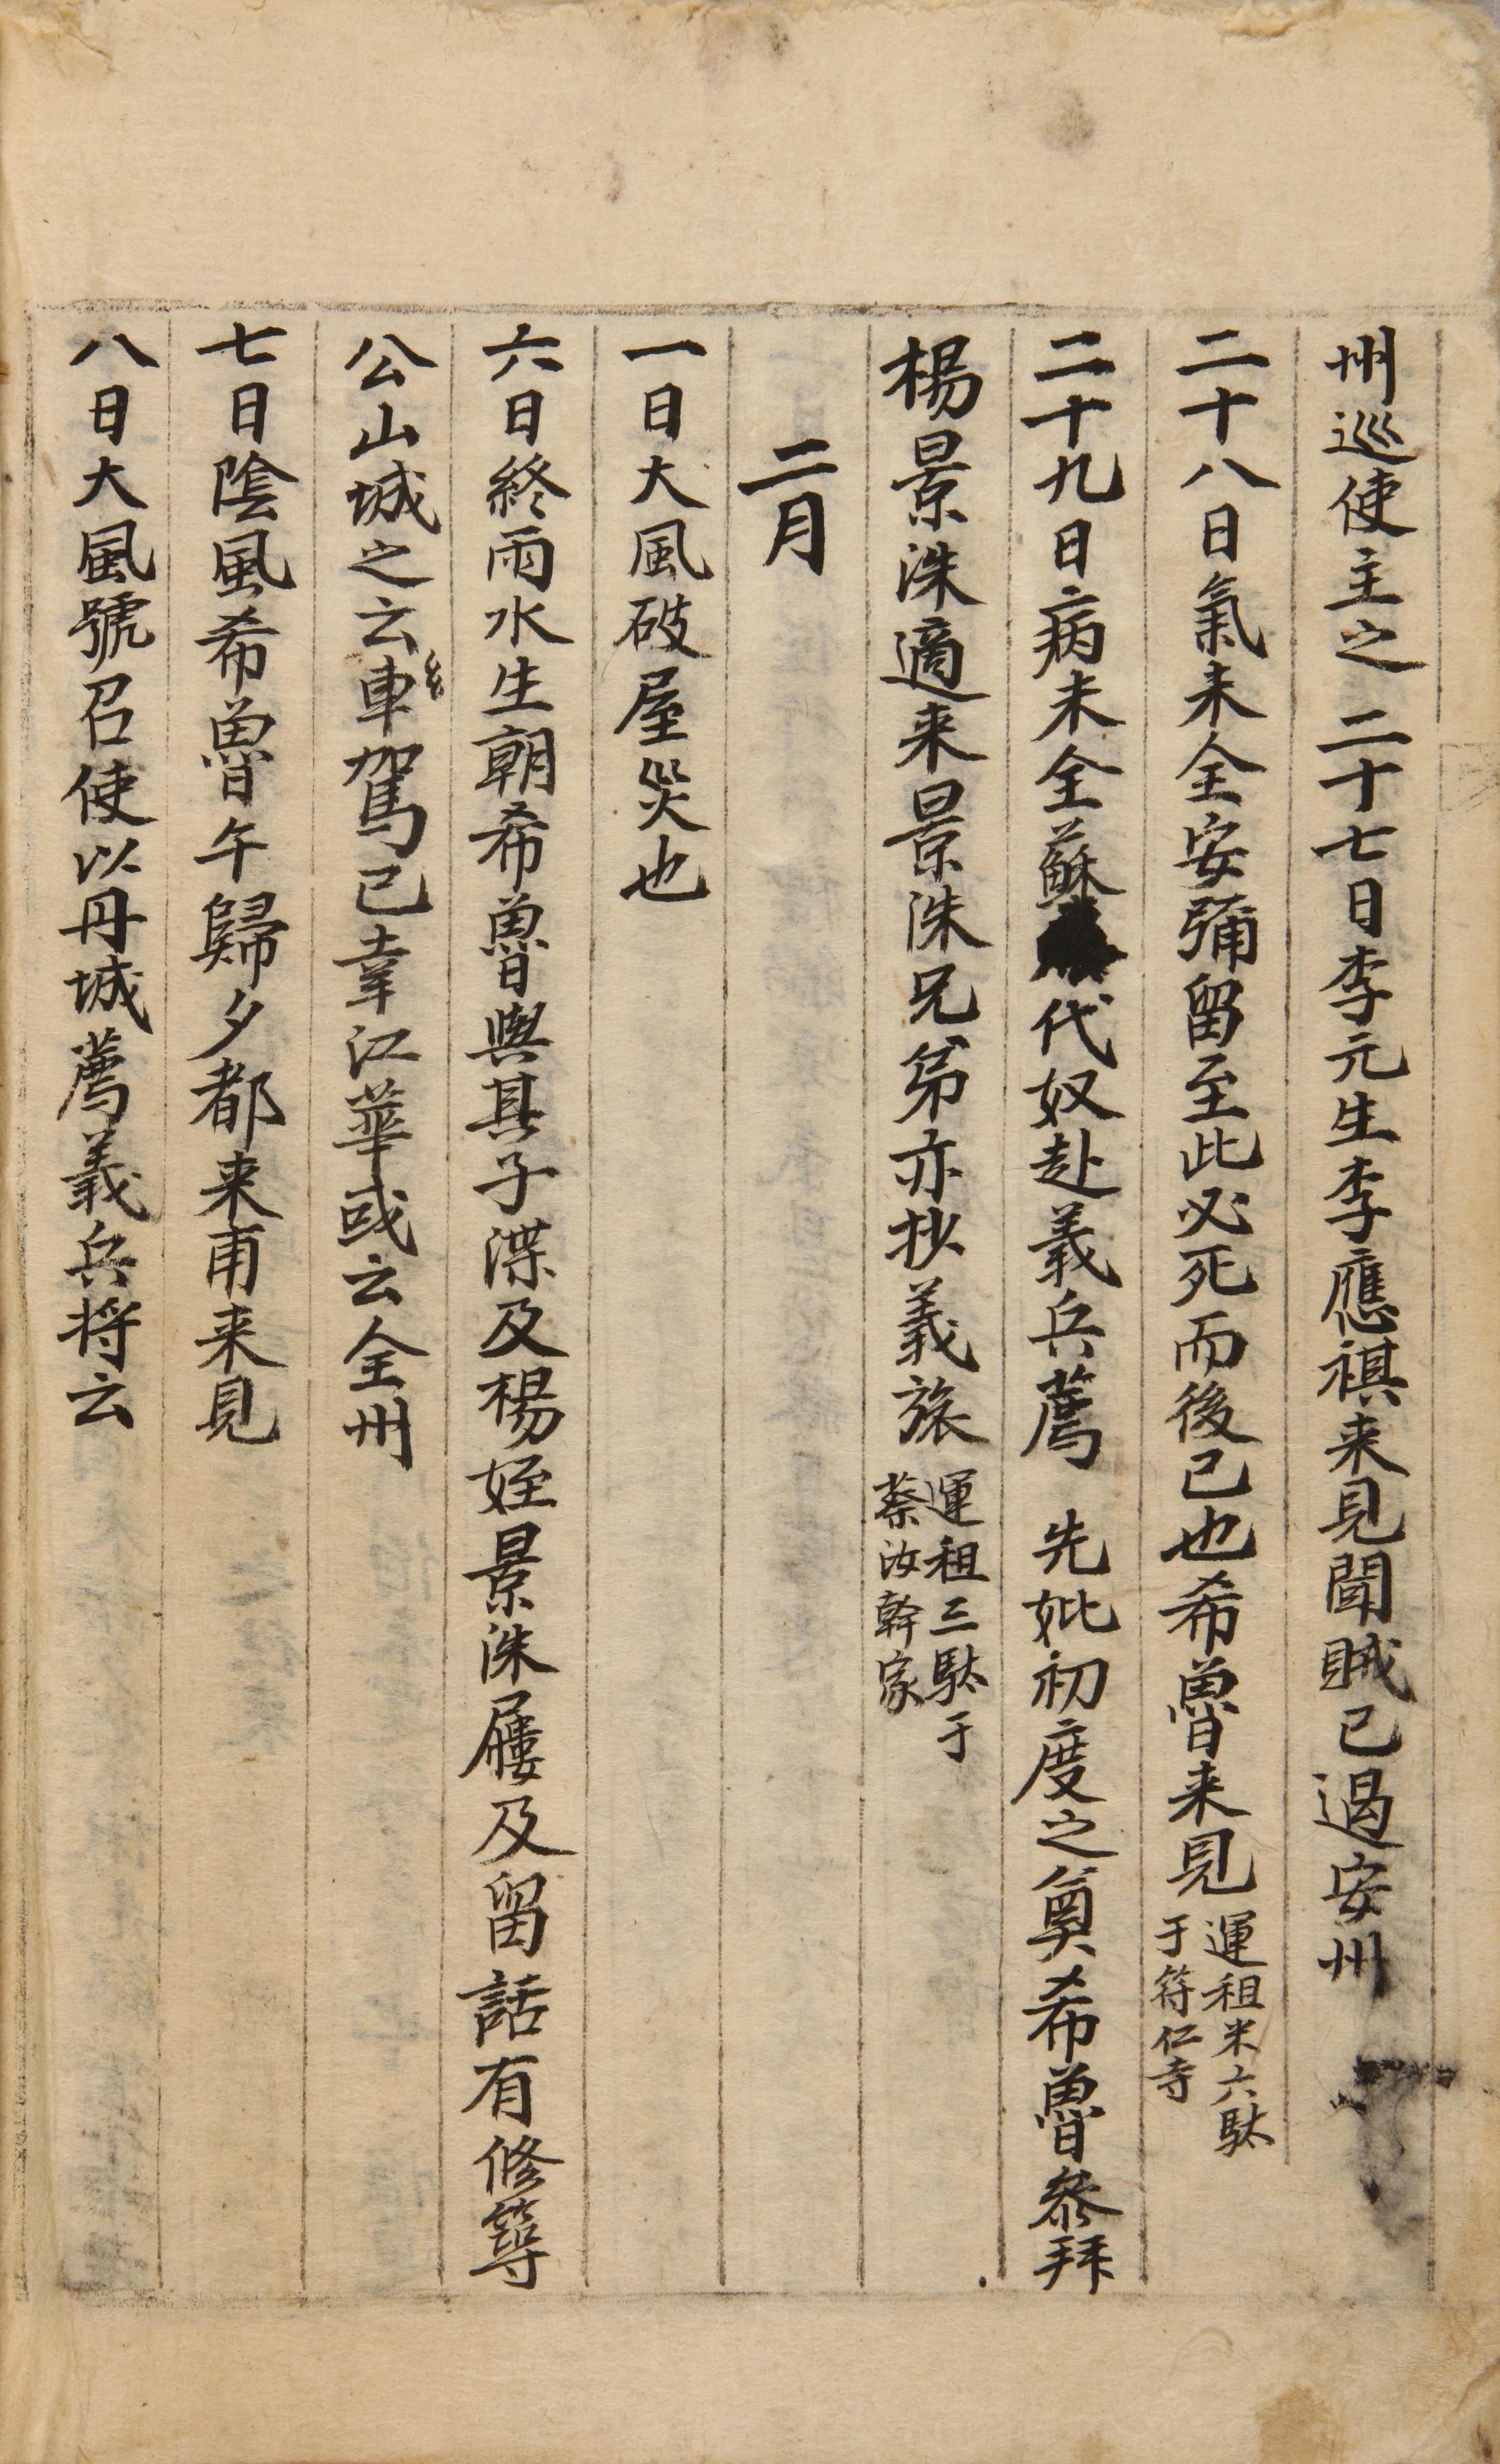 州巡使主之 二十七日李元生李應祺来見聞賊已過安州
二十八日氣未全安彌留至此必死而後已也希魯来見運租米六駄于符仁寺
二十九日病未全蘇代奴赴義兵薦 先妣初度之奠希魯叅拜
楊景洙適来景洙兄弟亦抄義旅運租三駄于蔡汝幹家
二月
一日大風破屋災也
六日終雨水生朝希魯與其子渫及楊姪景洙屨及留話有修等
公山城之云車駕已幸江華或云全州
七日陰風希魯午歸夕都来甫来見
八日大風號召使以丹城薦義兵将云